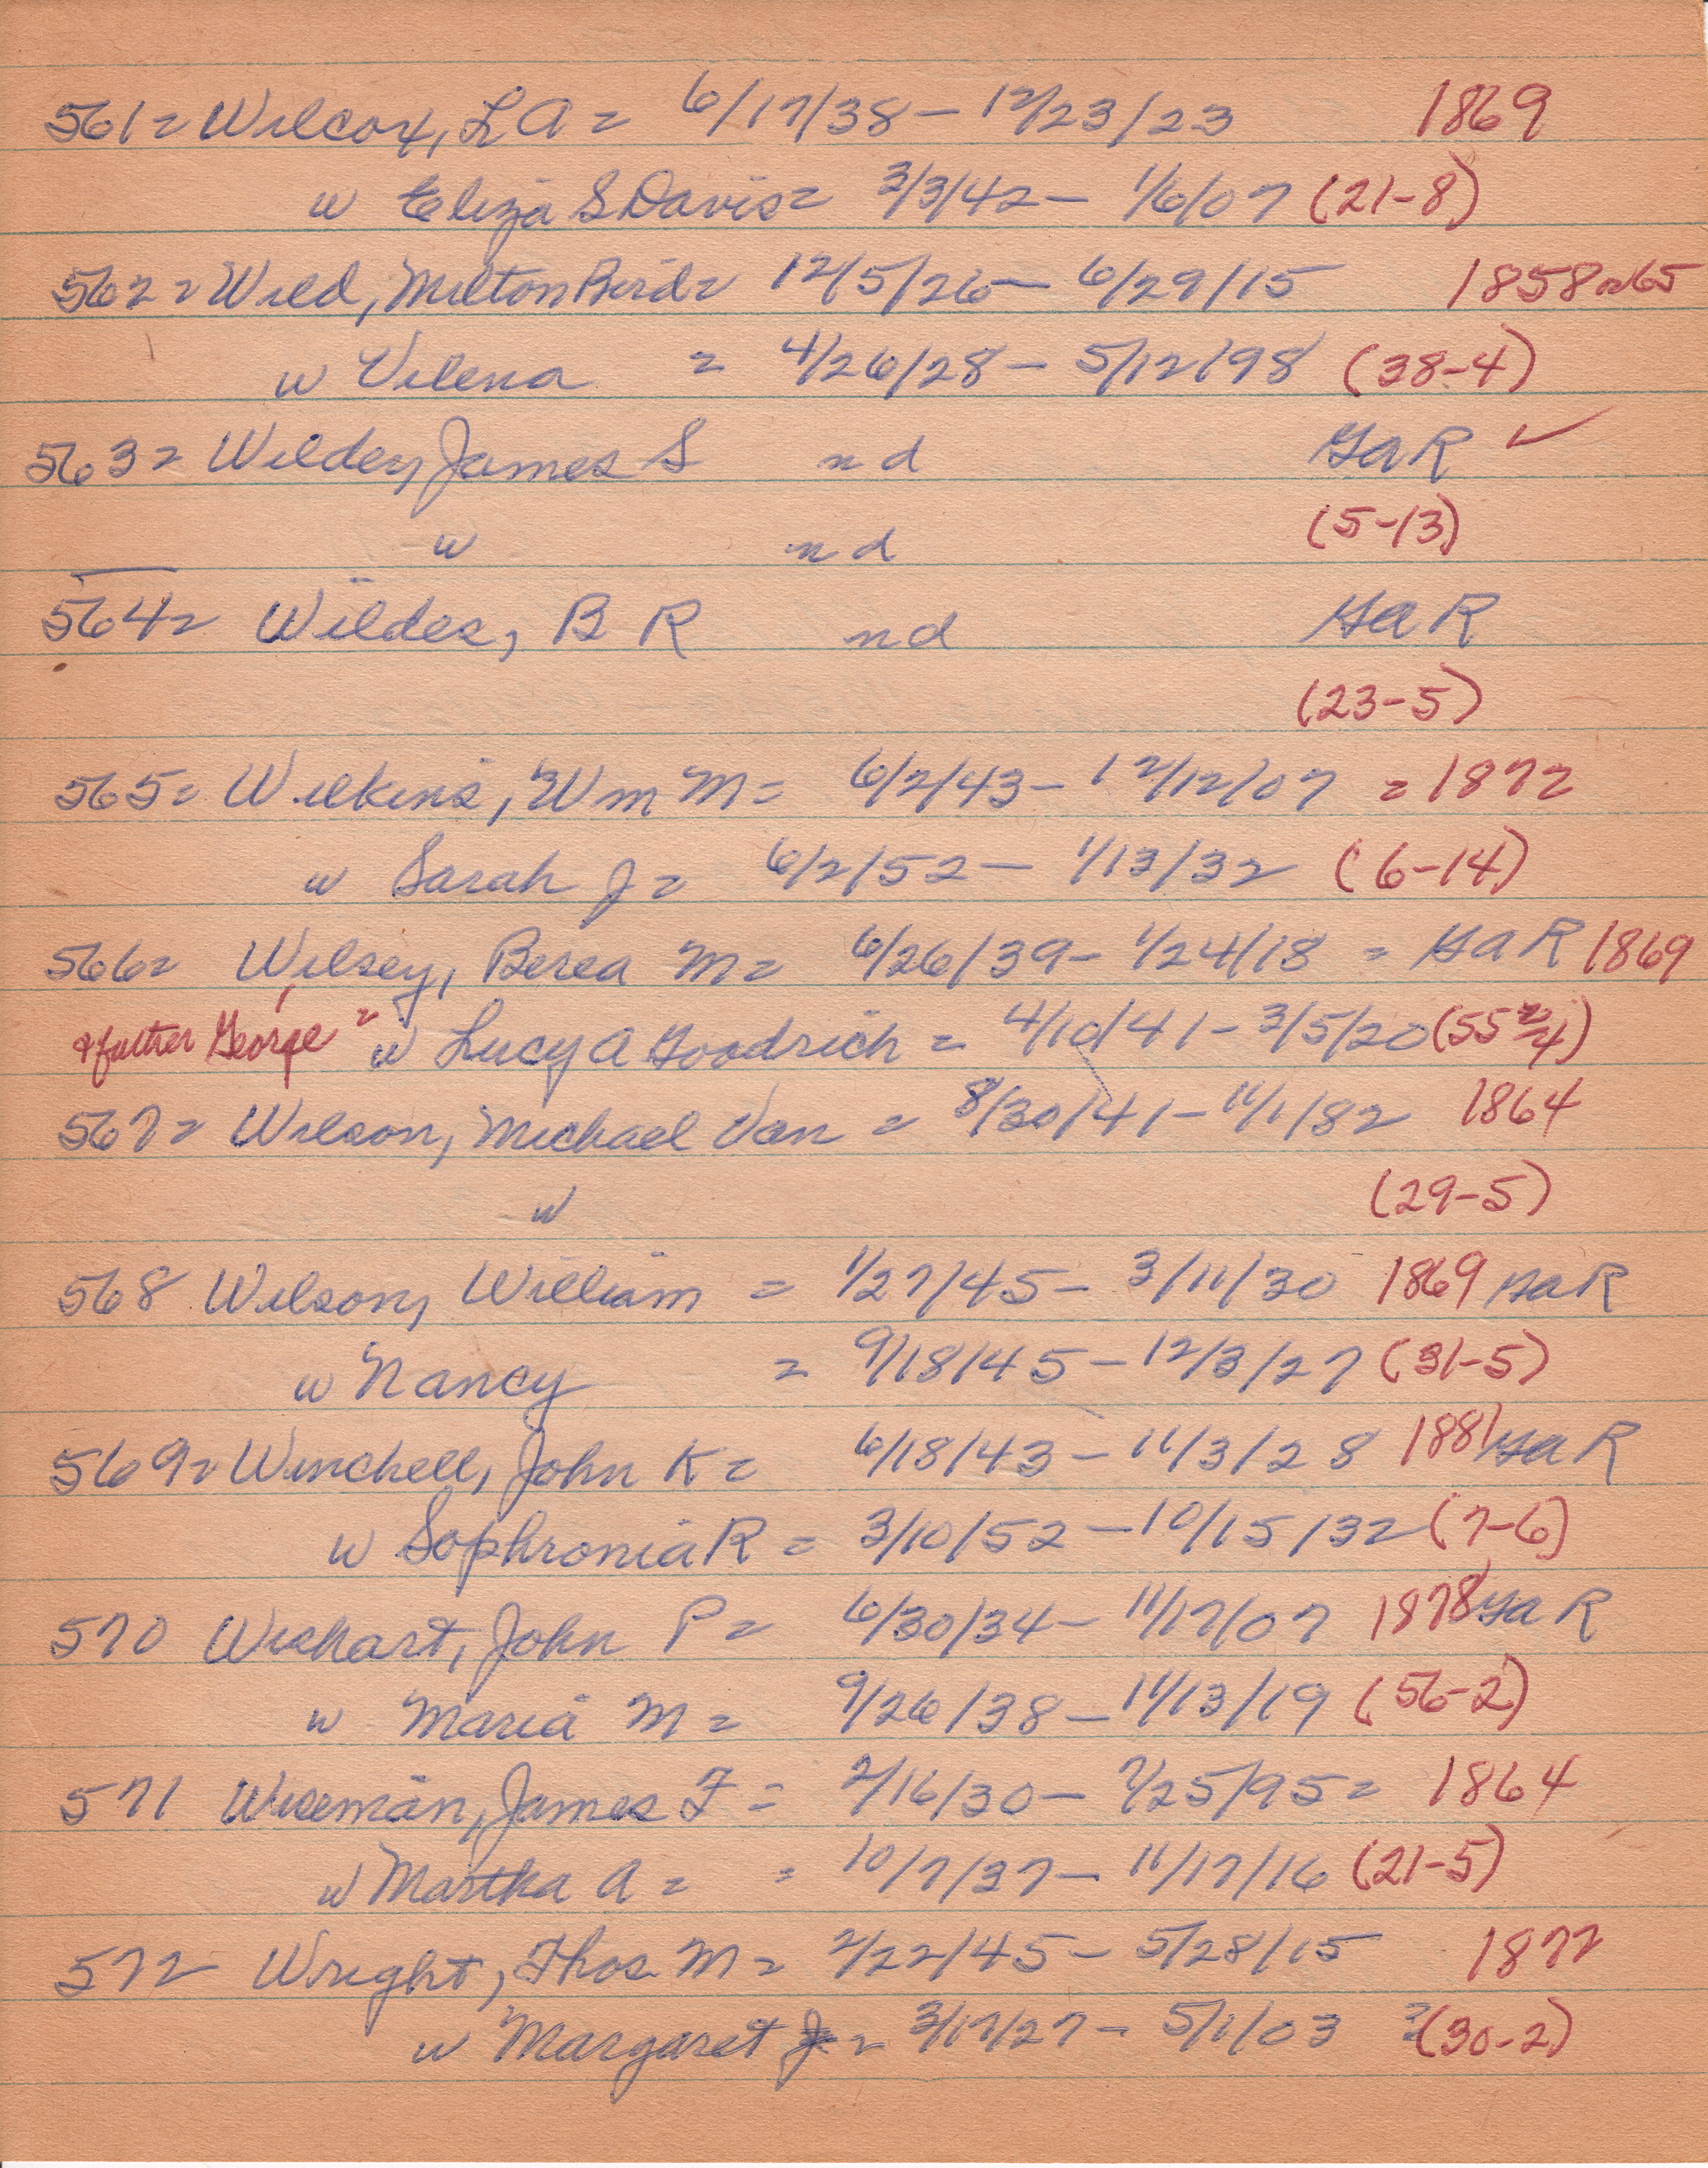 561= Wilcox, L A = 6/17/38 - 12/23/23 1869
w Eliza S Davis = 3/3/42 - 1/6/07 (21-8)
562= Wild, Milton Bird = 12/5/26 - 6/29/15 1858 or 65
w Vilena = 4/26/28 - 5/12/98 (38-4)
563= Wilder, James S n d GaR ✓
w n d (5-13)
564= Wildes, B R n d GaR
(23-5)
565= Wilkins, Wm M = 6/2/43 - 12/12/07 = 1872
w Sarah J = 6/2/52 - 1/13/32 (6-14)
566= Wilsey, Berea M = 6/26/39 - 1/24/18 = GaR 1869
& father George = w Lucy A Goodrich = 4/10/41 - 3/5/20 (55
567= Wilson, Michael Van = 8/30/41 - 11/1/82 1864
w (29-5)
568 Wilson, William = 1/27/45 - 3/11/30 1869 GaR
w Nancy = 9/18/45 - 12/3/27 (31-5)
569= Winchell, John K = 6/18/43 - 11/3/28 1881 GaR
w Sophronia R = 3/10/52 - 10/15/32 (7-6)
570 Wishart, John P = 6/30/34 - 11/17/07 1878 GaR
w Maria M = 9/26/38 - 11/13/19 (56-2)
571 Wiseman, James F = 2/16/30 - 7/25/95 = 1864
w Martha A = = 10/7/37 - 11/17/16 (21-5)
572 Wright, Thos M = 2/22/45 - 5/28/15 1872
w Margaret J = 3/17/27 - 5/1/03 ? (30-2)